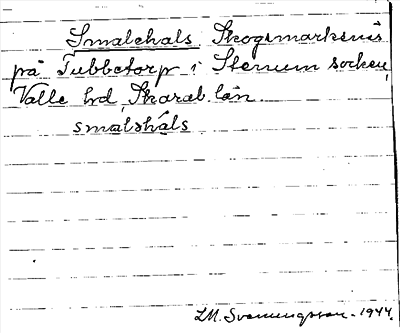 Smalehals Skogsmarksnäs
på Tubbetorp i Stenum socken,
Valle hd, Skarab. län.
smalshåls
LM. Svenungsson. 1944.